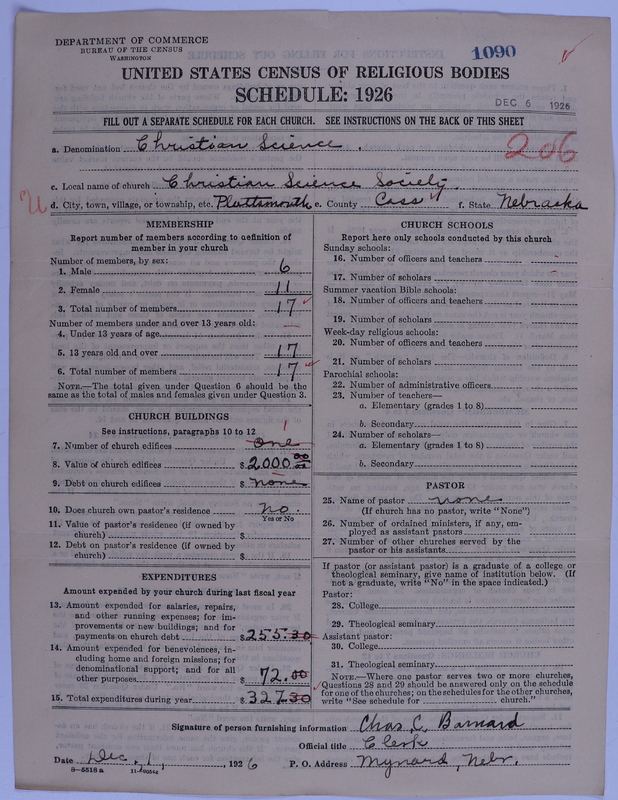 DEPARTMENT OF COMMERCE
BUREAU OF THE CENSUS
WASHINGTON
1090
UNITED STATES CENSUS OF RELIGIOUS BODIES
SCHEDULE: 1926
DEC 6 1926
FILL OUT A SEPARATE SCHEDULE FOR EACH CHURCH. SEE INSTRUCTIONS ON THE BACK OF THIS SHEET
a. Denomination Christian Science.
206
c. Local name of church Christian Science Society.
d. City, town, village, or township, etc. Plattsmouth e. County Cass f. State Nebraska
MEMBERSHIP
Report number of members according to definition of
member in your church
Number of members, by sex:
1. Male 6
2. Female 11
3. Total number of members 17
Number of members under and over 13 years old:
4. Under 13 years of age
5. 13 years old and over 17
6. Total number of members 17
NOTE.—The total given under Question 6 should be the
same as the total of males and females given under Question 3.
CHURCH BUILDINGS
See instructions, paragraphs 10 to 12
1
7. Number of church edifices one
8. Value of church edifices $2000.00
9. Debt on church edifices $ none
10. Does church own pastor's residence No.
Yes or No
11. Value of pastor's residence (if owned by
church) $
12. Debt on pastor's residence (if owned by
church) $
EXPENDITURES
Amount expended by your church during last fiscal year
13. Amount expended for salaries, repairs,
and other running expenses; for im-
provements or new buildings; and for
payments on church debt $255.30
14. Amount expended for benevolences, in-
cluding home and foreign missions; for
denominational support; and for all
other purposes $ 72.00
15. Total expenditures during year $ 327.30
CHURCH SCHOOLS
Report here only schools conducted by this church
Sunday schools:
16. Number of officers and teachers
17. Number of scholars
Summer vacation Bible schools:
18. Number of officers and teachers
19. Number of scholars
Week-day religious schools:
20. Number of officers and teachers
21. Number of scholars
Parochial schools:
22. Number of administrative officers
23. Number of teachers—
a. Elementary (grades 1 to 8)
b. Secondary
24. Number of scholars—
a. Elementary (grades 1 to 8)
b. Secondary
PASTOR
25. Name of pastor none
(If church has no pastor, write "None")
26. Number of ordained ministers, if any, em-
ployed as assistant pastors
27. Number of other churches served by the
pastor or his assistants
If pastor (or assistant pastor) is a graduate of a college or
theological seminary, give name of institution below. (If
not a graduate, write "No" in the space indicated.)
Pastor:
28. College
29. Theological seminary
Assistant pastor:
30. College
31. Theological seminary
NOTE.—Where one pastor serves two or more churches,
Questions 28 and 29 should be answered only on the schedule
for one of the churches; on the schedules for the other churches,
write "See schedule for church."
Signature of person furnishing information Chas. C. Barnard
Official title Clerk
Date Dec. 1, 1926 P. O. Address Mynard, Nebr.
8—5518 a